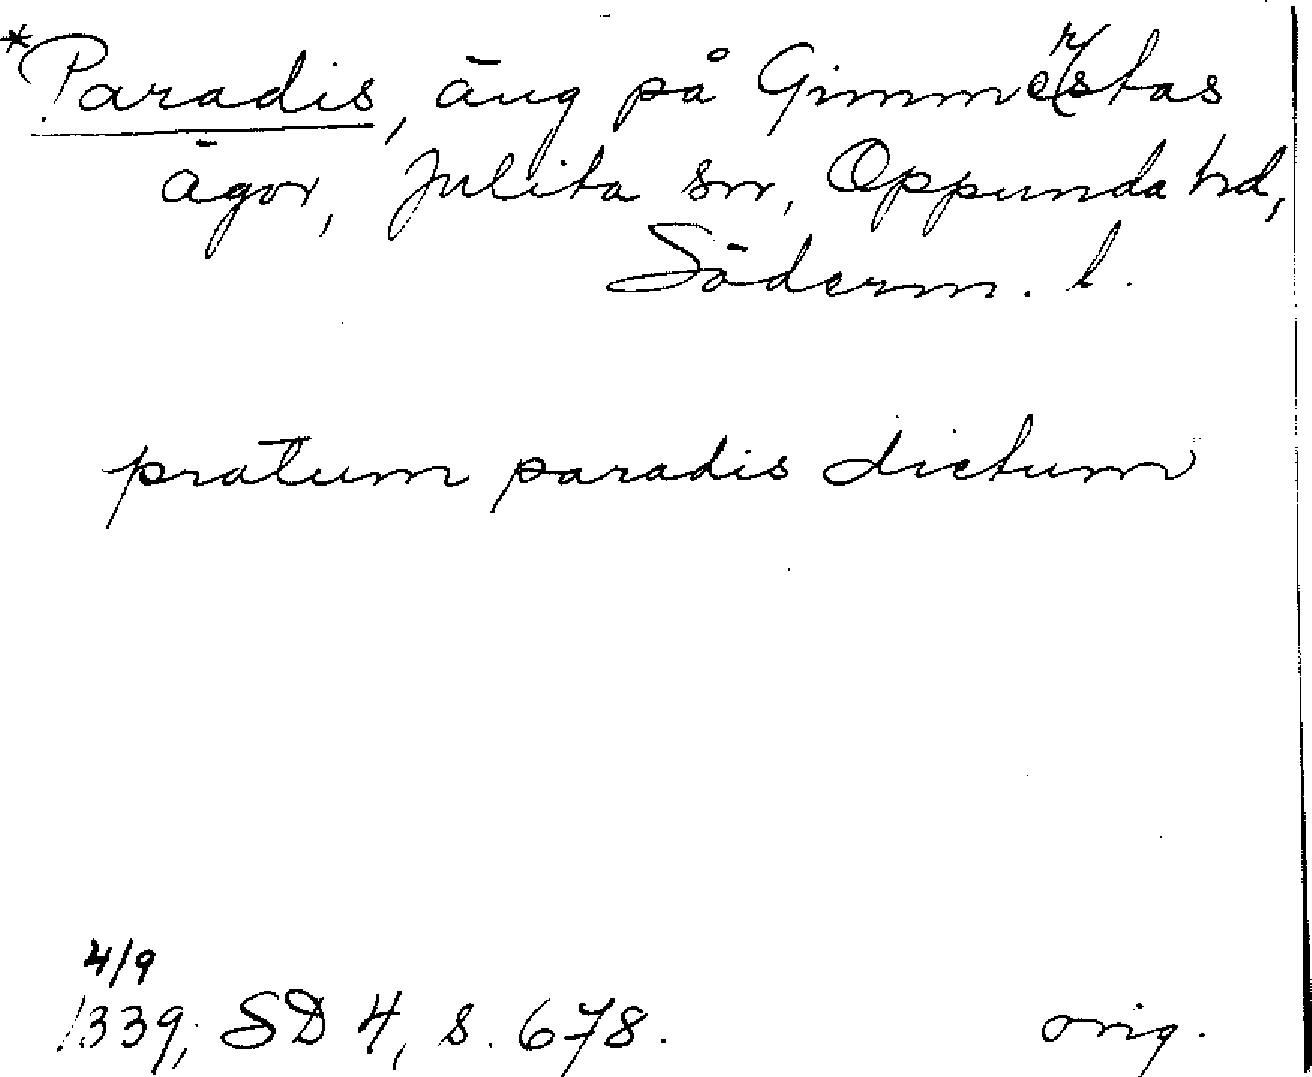 *Paradis, äng på Gimmerstas
ägor, Julita sn, Oppunda hd,
Söderm. l.
pratum paradis dictum
4/9
1339, SD 4, s. 678. orig.